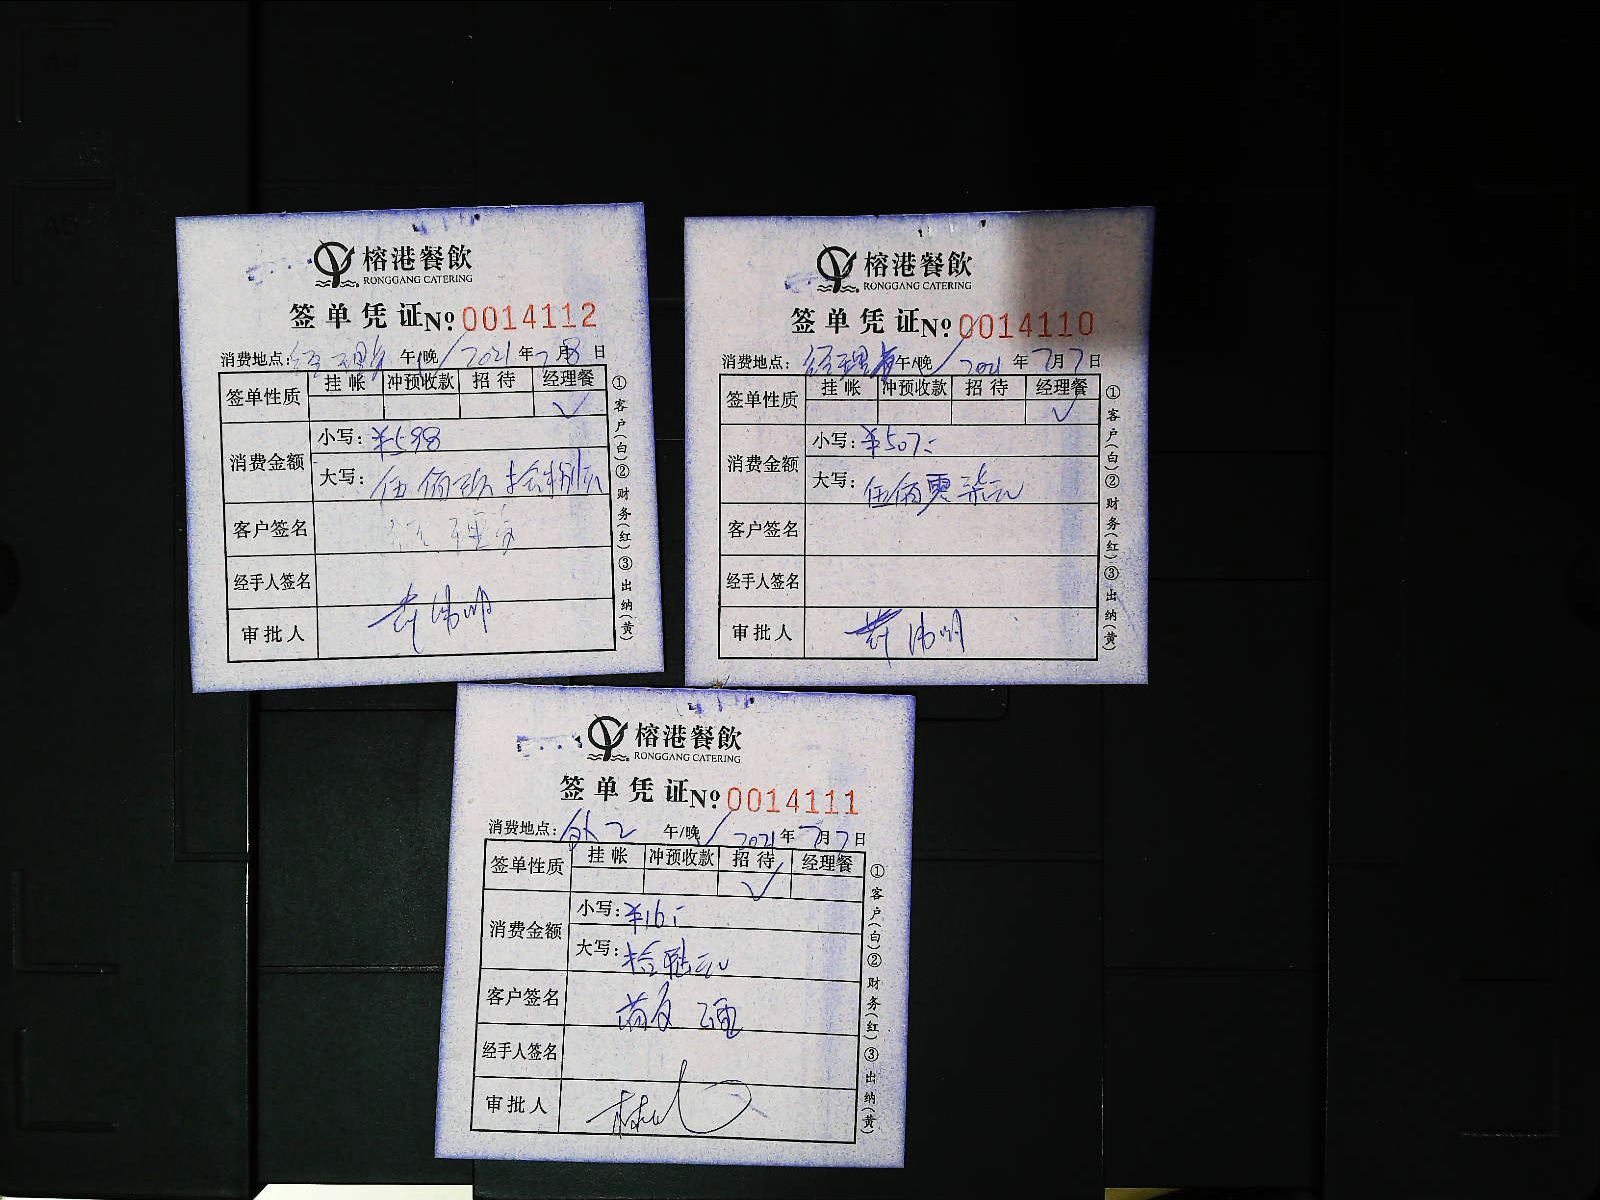 榕港餐飲
RONGGANG CATERING
签单凭证 № 0014112
消费地点: 经理餐 午/晚 2021年7月8日
签单性质 挂帐 冲预收款 招待 经理餐
✓
消费金额
小写: ¥598
大写: 伍佰玖拾捌元
客户签名
经手人签名
审批人
①客户(白)②财务(红)③出纳(黄)
榕港餐飲
RONGGANG CATERING
签单凭证 № 0014110
消费地点: 经理餐 午/晚 2021年7月7日
签单性质 挂帐 冲预收款 招待 经理餐
✓
消费金额
小写: ¥507
大写: 伍佰零柒元
客户签名
经手人签名
审批人
①客户(白)②财务(红)③出纳(黄)
榕港餐飲
RONGGANG CATERING
签单凭证 № 0014111
消费地点: 午/晚 2021年7月7日
签单性质 挂帐 冲预收款 招待 经理餐
✓
消费金额
小写: ¥16
大写: 拾陆元
客户签名
经手人签名
审批人
①客户(白)②财务(红)③出纳(黄)